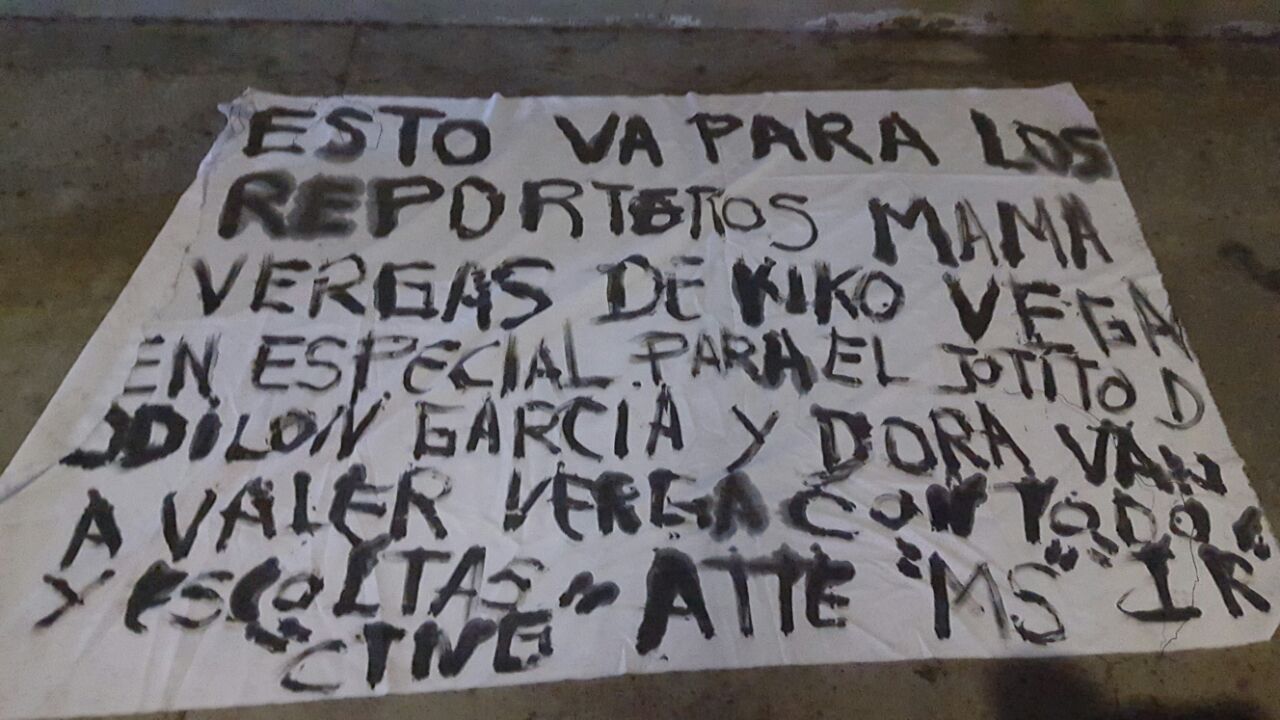 ESTO VA PARA LOS
REPORTEROS MAMA
VERGAS DE KIKO VEGA
EN ESPECIAL PARA EL JOTITO D
ODILON GARCIA Y DORA VAN
A VALER VERGA CON TODO
Y ESCOLTAS" ATTE "MS" "IR"
CTNG